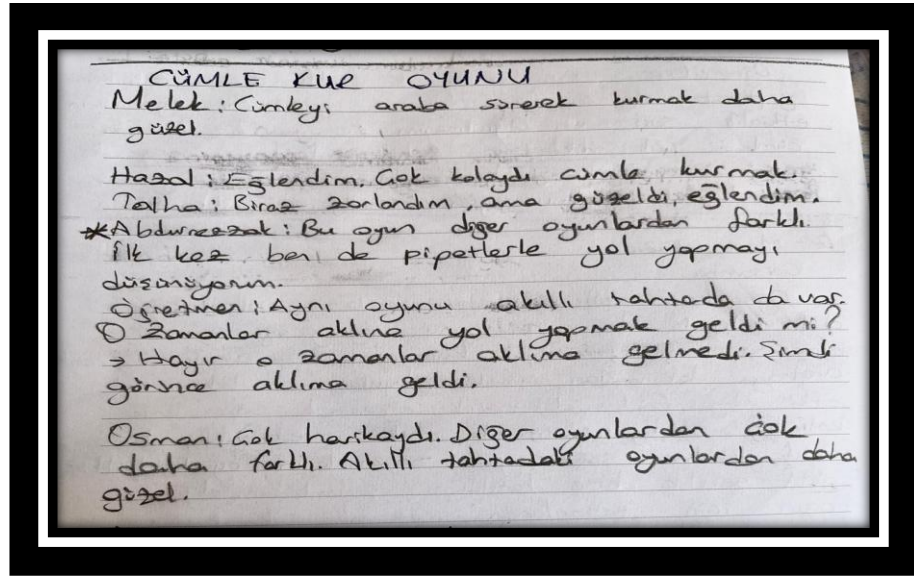 CÜMLE KUR OYUNU
Melek: Cümleyi araba sürerek kurmak daha
güzel.
Hazal: Eğlendim. Çok kolaydı cümle kurmak.
Talha: Biraz zorlandım, ama güzeldi, eğlendim.
*Abdurrezzak: Bu oyun diğer oyunlardan farklı.
İlk kez ben de pipetlerle yol yapmayı
düşünüyorum.
Öğretmen: Aynı oyunu akıllı tahtada da var.
O zamanlar aklına yol yapmak geldi mi?
→ Hayır o zamanlar aklıma gelmedi. Şimdi
görünce aklıma geldi.
Osman: Çok harikaydı. Diğer oyunlardan çok
daha farklı. Akıllı tahtadaki oyunlardan daha
güzel.